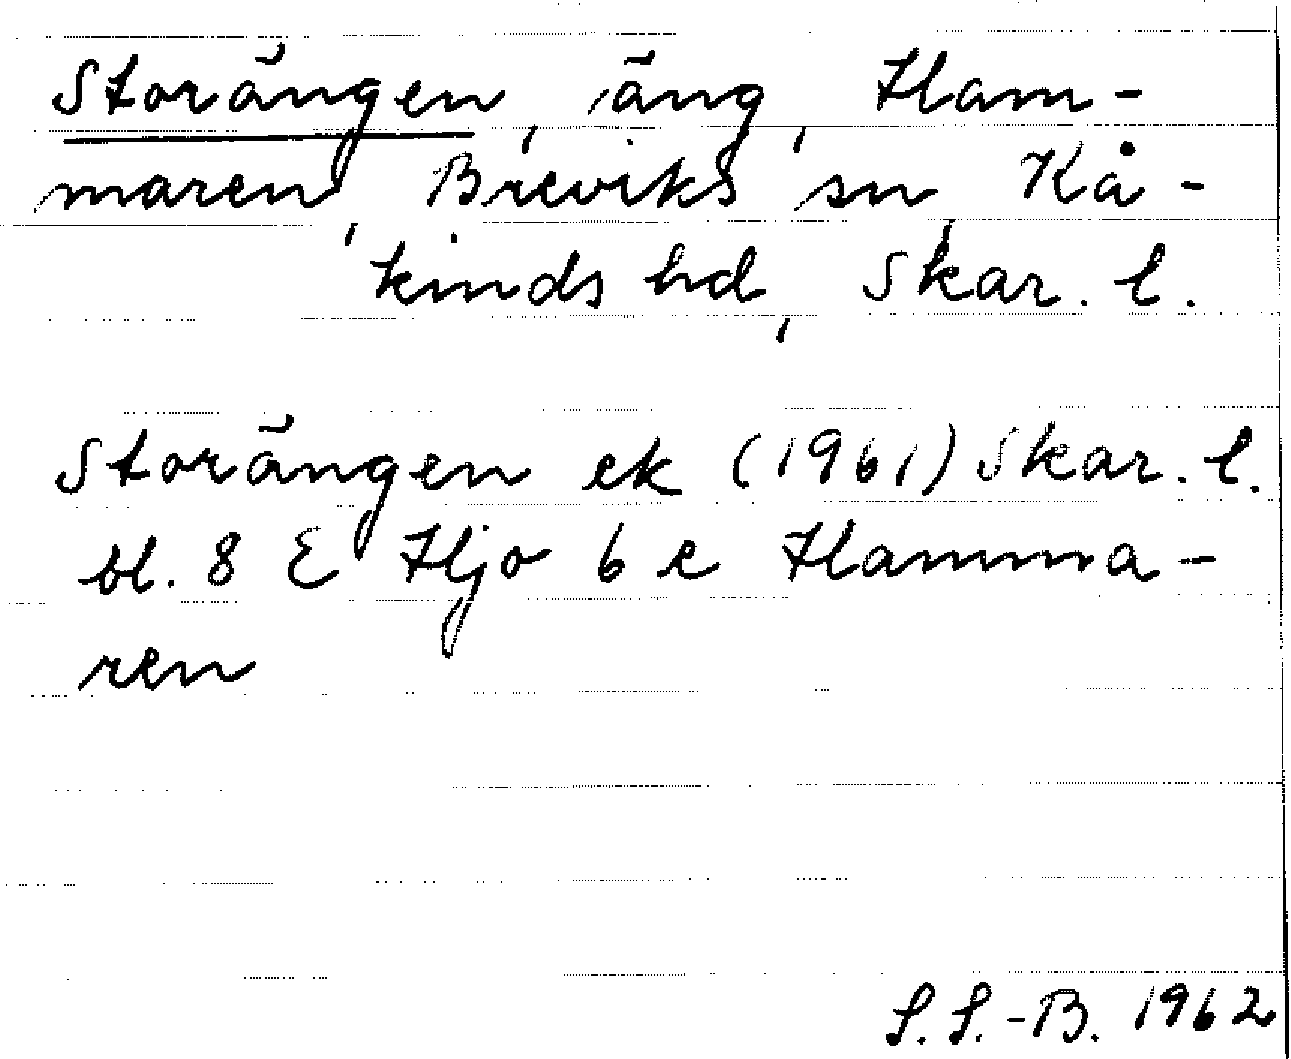 Storängen, äng, Ham-
maren, Breviks sn, Kå-
kinds hd, Skar. l.
Storängen ek (1961) Skar. l.
bl. 8 E Hjo 6 e Hamma-
ren
S. S.-B. 1962